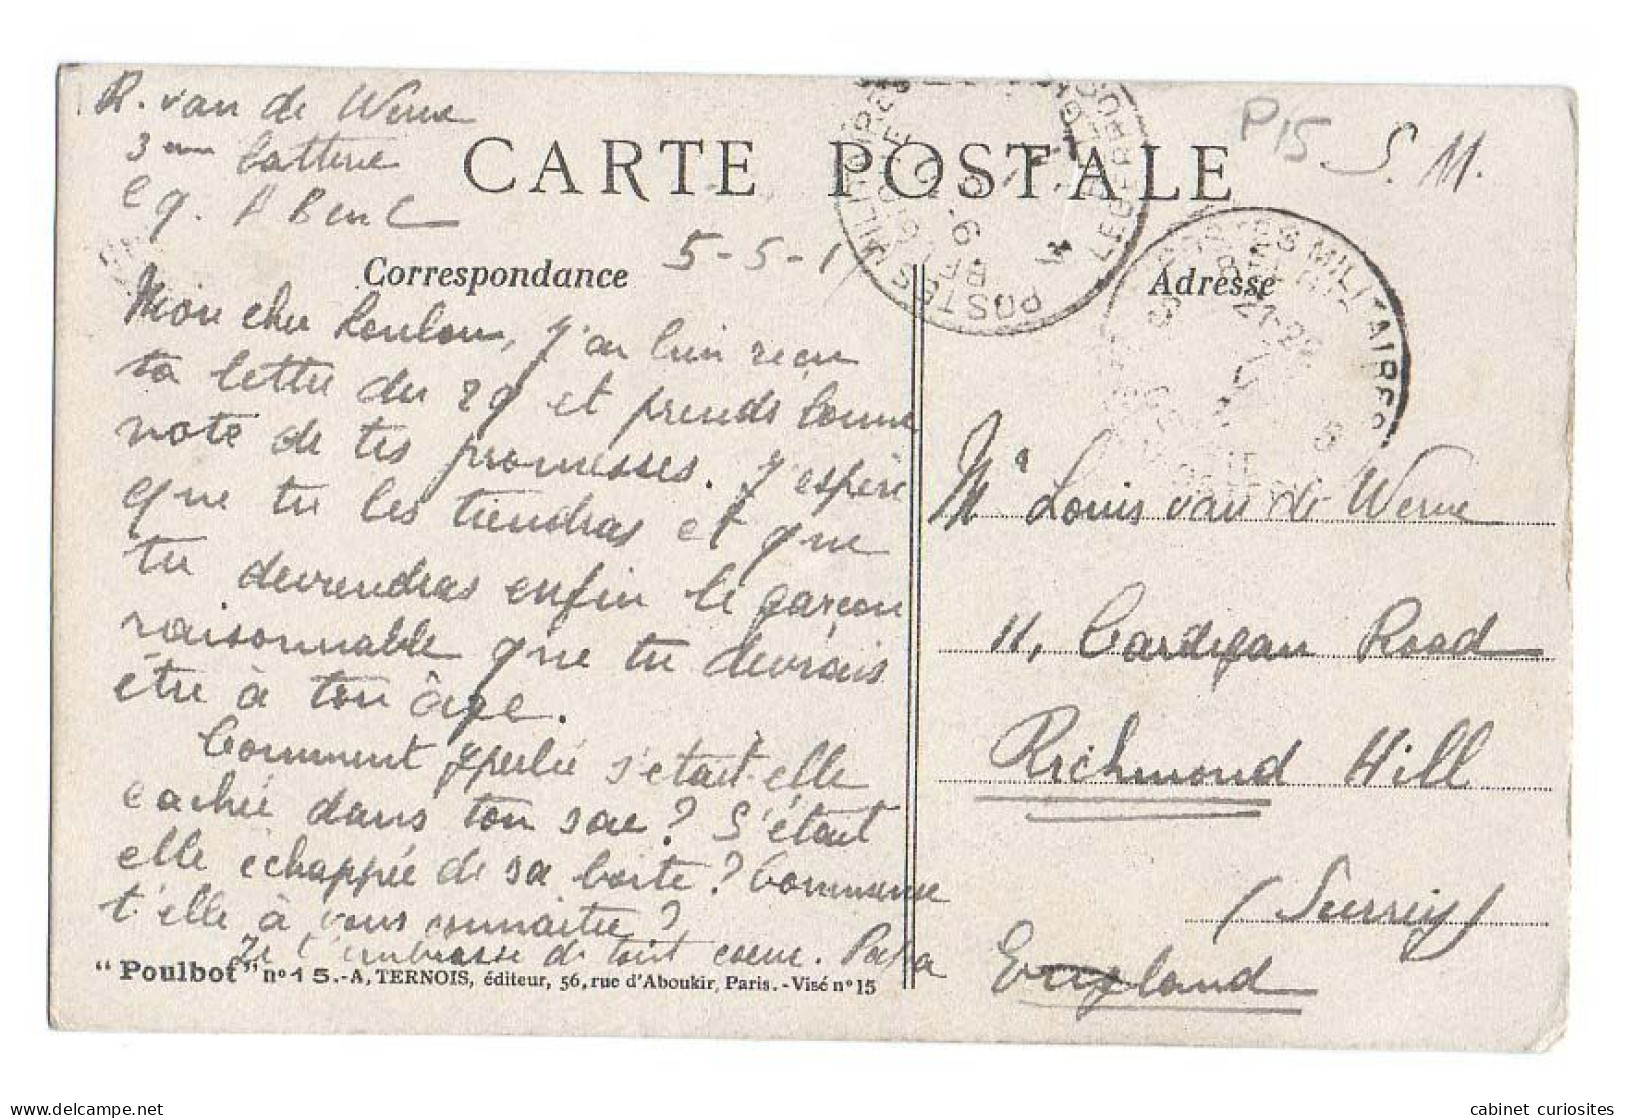 R. van de Werve
3me batterie
CARTE POSTALE
P15 S. M.
5-5-1
Correspondance
Mon cher Loulou, J'ai bien reçu
ta lettre du 29 et prends bonne
note de tes promesses. J'espère
que tu les tiendras et que
tu deviendras enfin le garçon
raisonnable que tu devrais
être à ton âge.
Comment s'était-elle
cachée dans ton sac? S'était
elle échappée de sa boite? Commence
t'elle à vous connaitre?
Je t'embrasse de tout coeur. Papa
"Poulbot" nº 15.-A, TERNOIS, éditeur, 56, rue d'Aboukir, Paris.-Visé nº 15
POSTES MILITAIRES
BELGIQUE
LEGERPOST
POSTES MILITAIRES
Adresse
Mr Louis van de Werve
11, Cardigan Road
Richmond Hill
(Surrey)
England
cabinet_curiosites